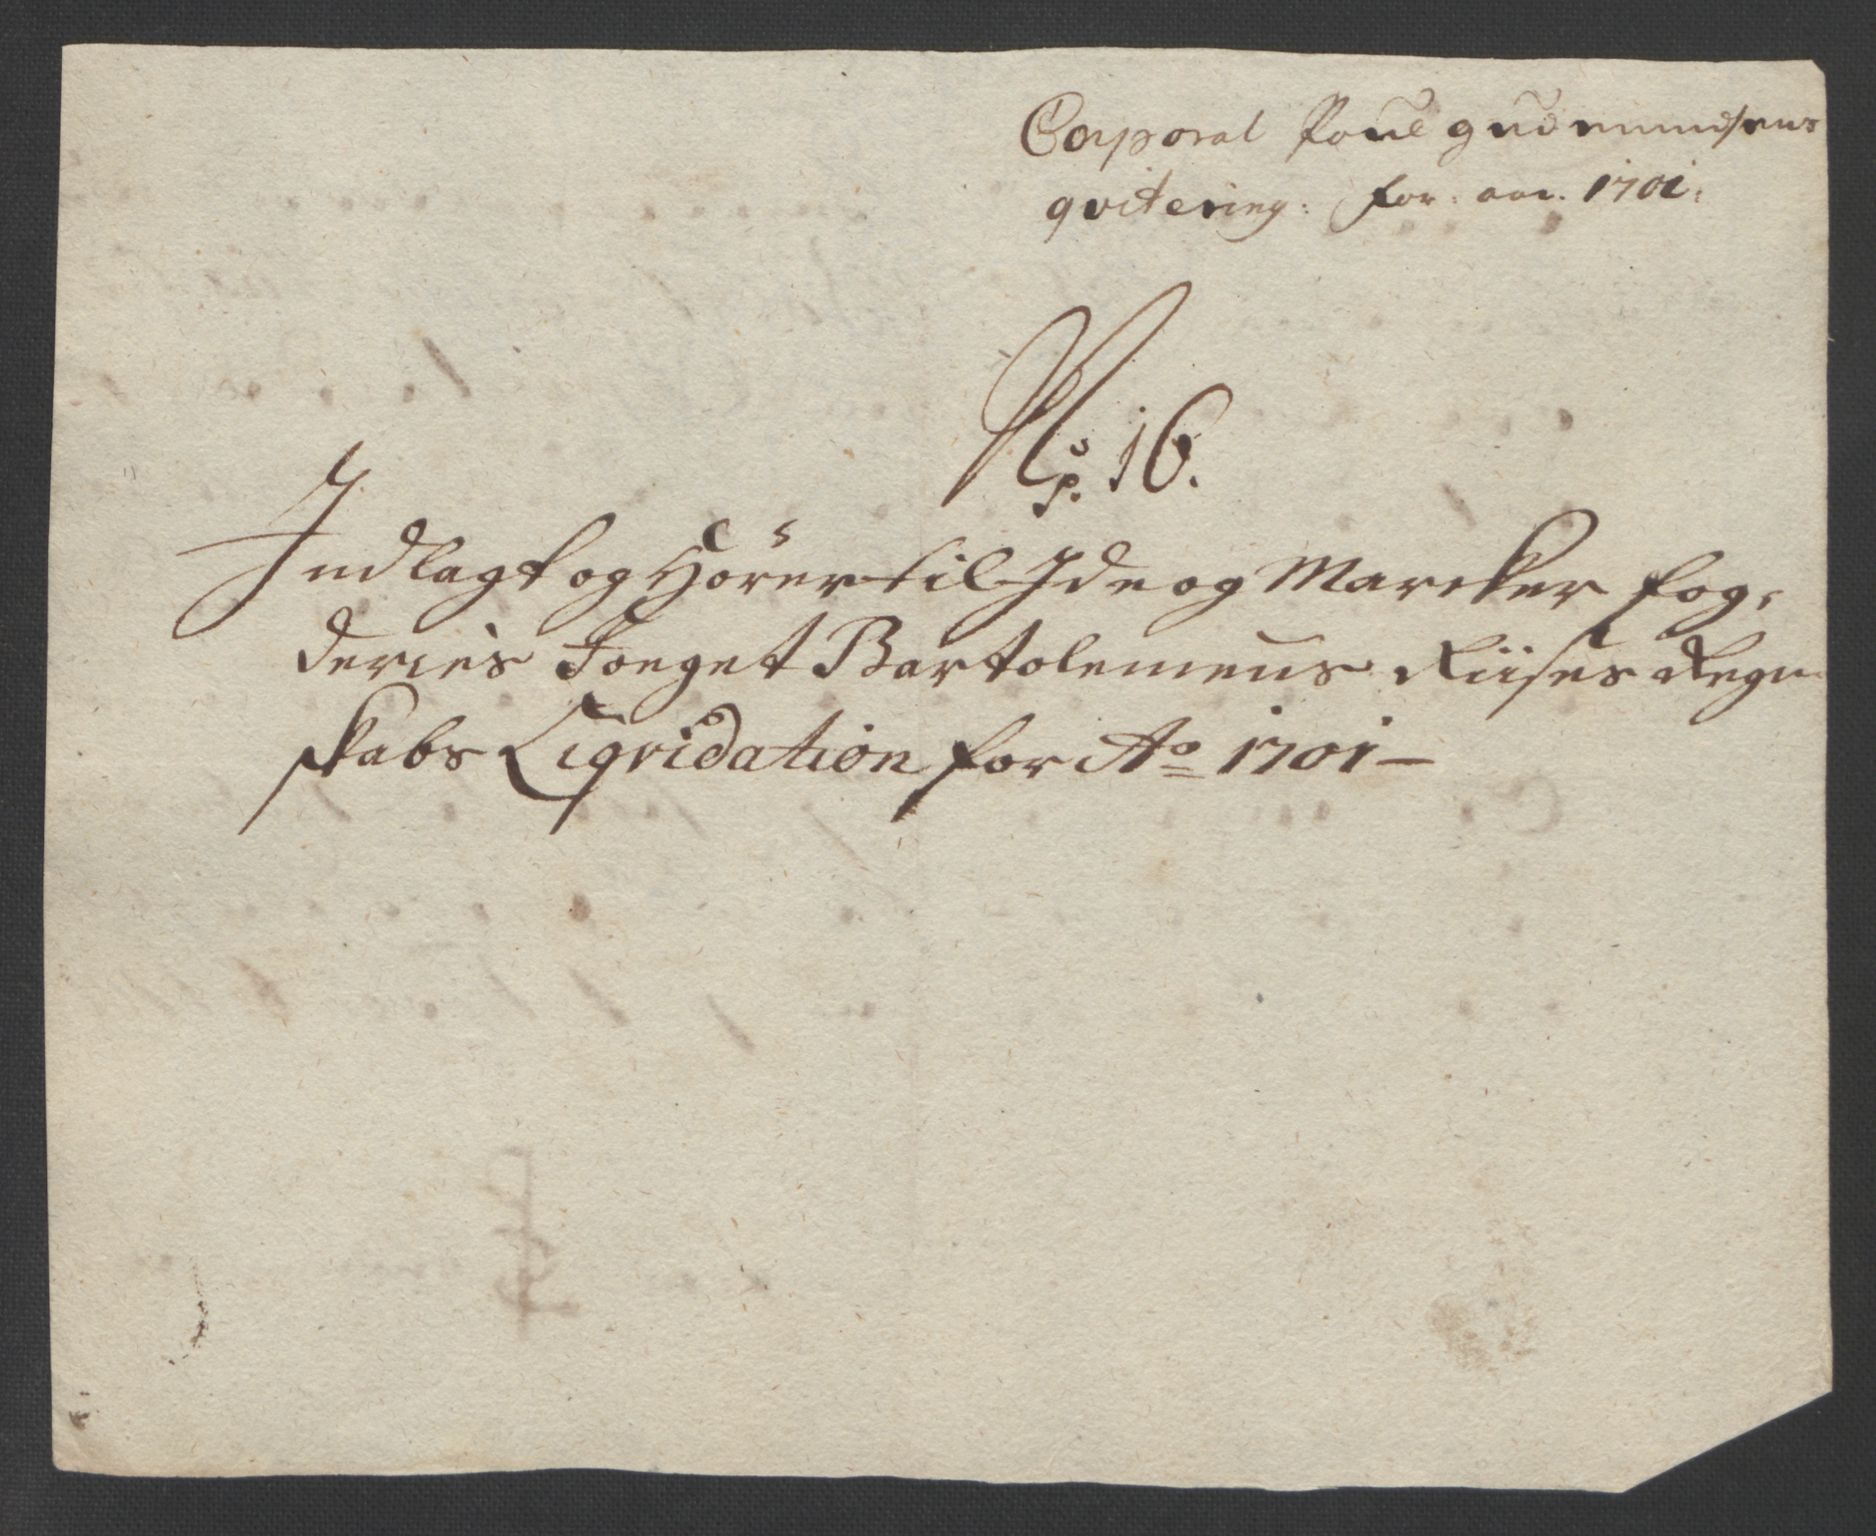 Corporal Poul gudmundsens
qvitering: for: aar. 1701:
No. 16.
Indlagt og Hörer til Ide og Marcker fog,
deries Foeget Bartolemeus Riises Regn
skabs Liqvidation for Ao 1701 –